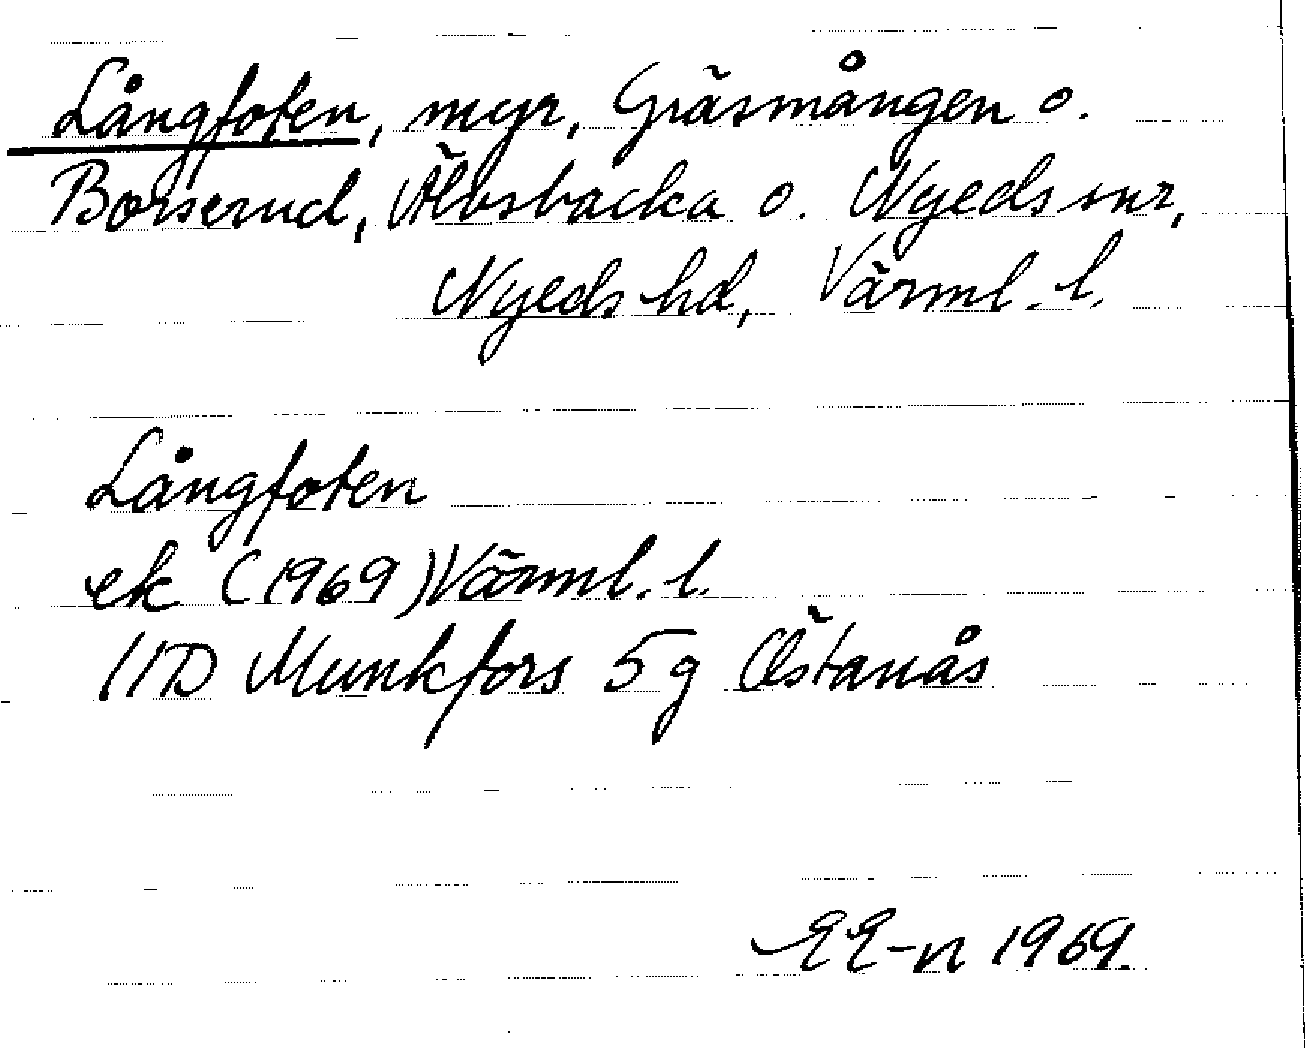 Långfoten, myr, Gräsmången o.
Borserud, Älvsbacka o. Nyeds snr,
Nyeds hd, Värml. l.
Långfoten
ek (1969) Värml. l.
11D Munkfors 5g Östanås
EE-n 1969.